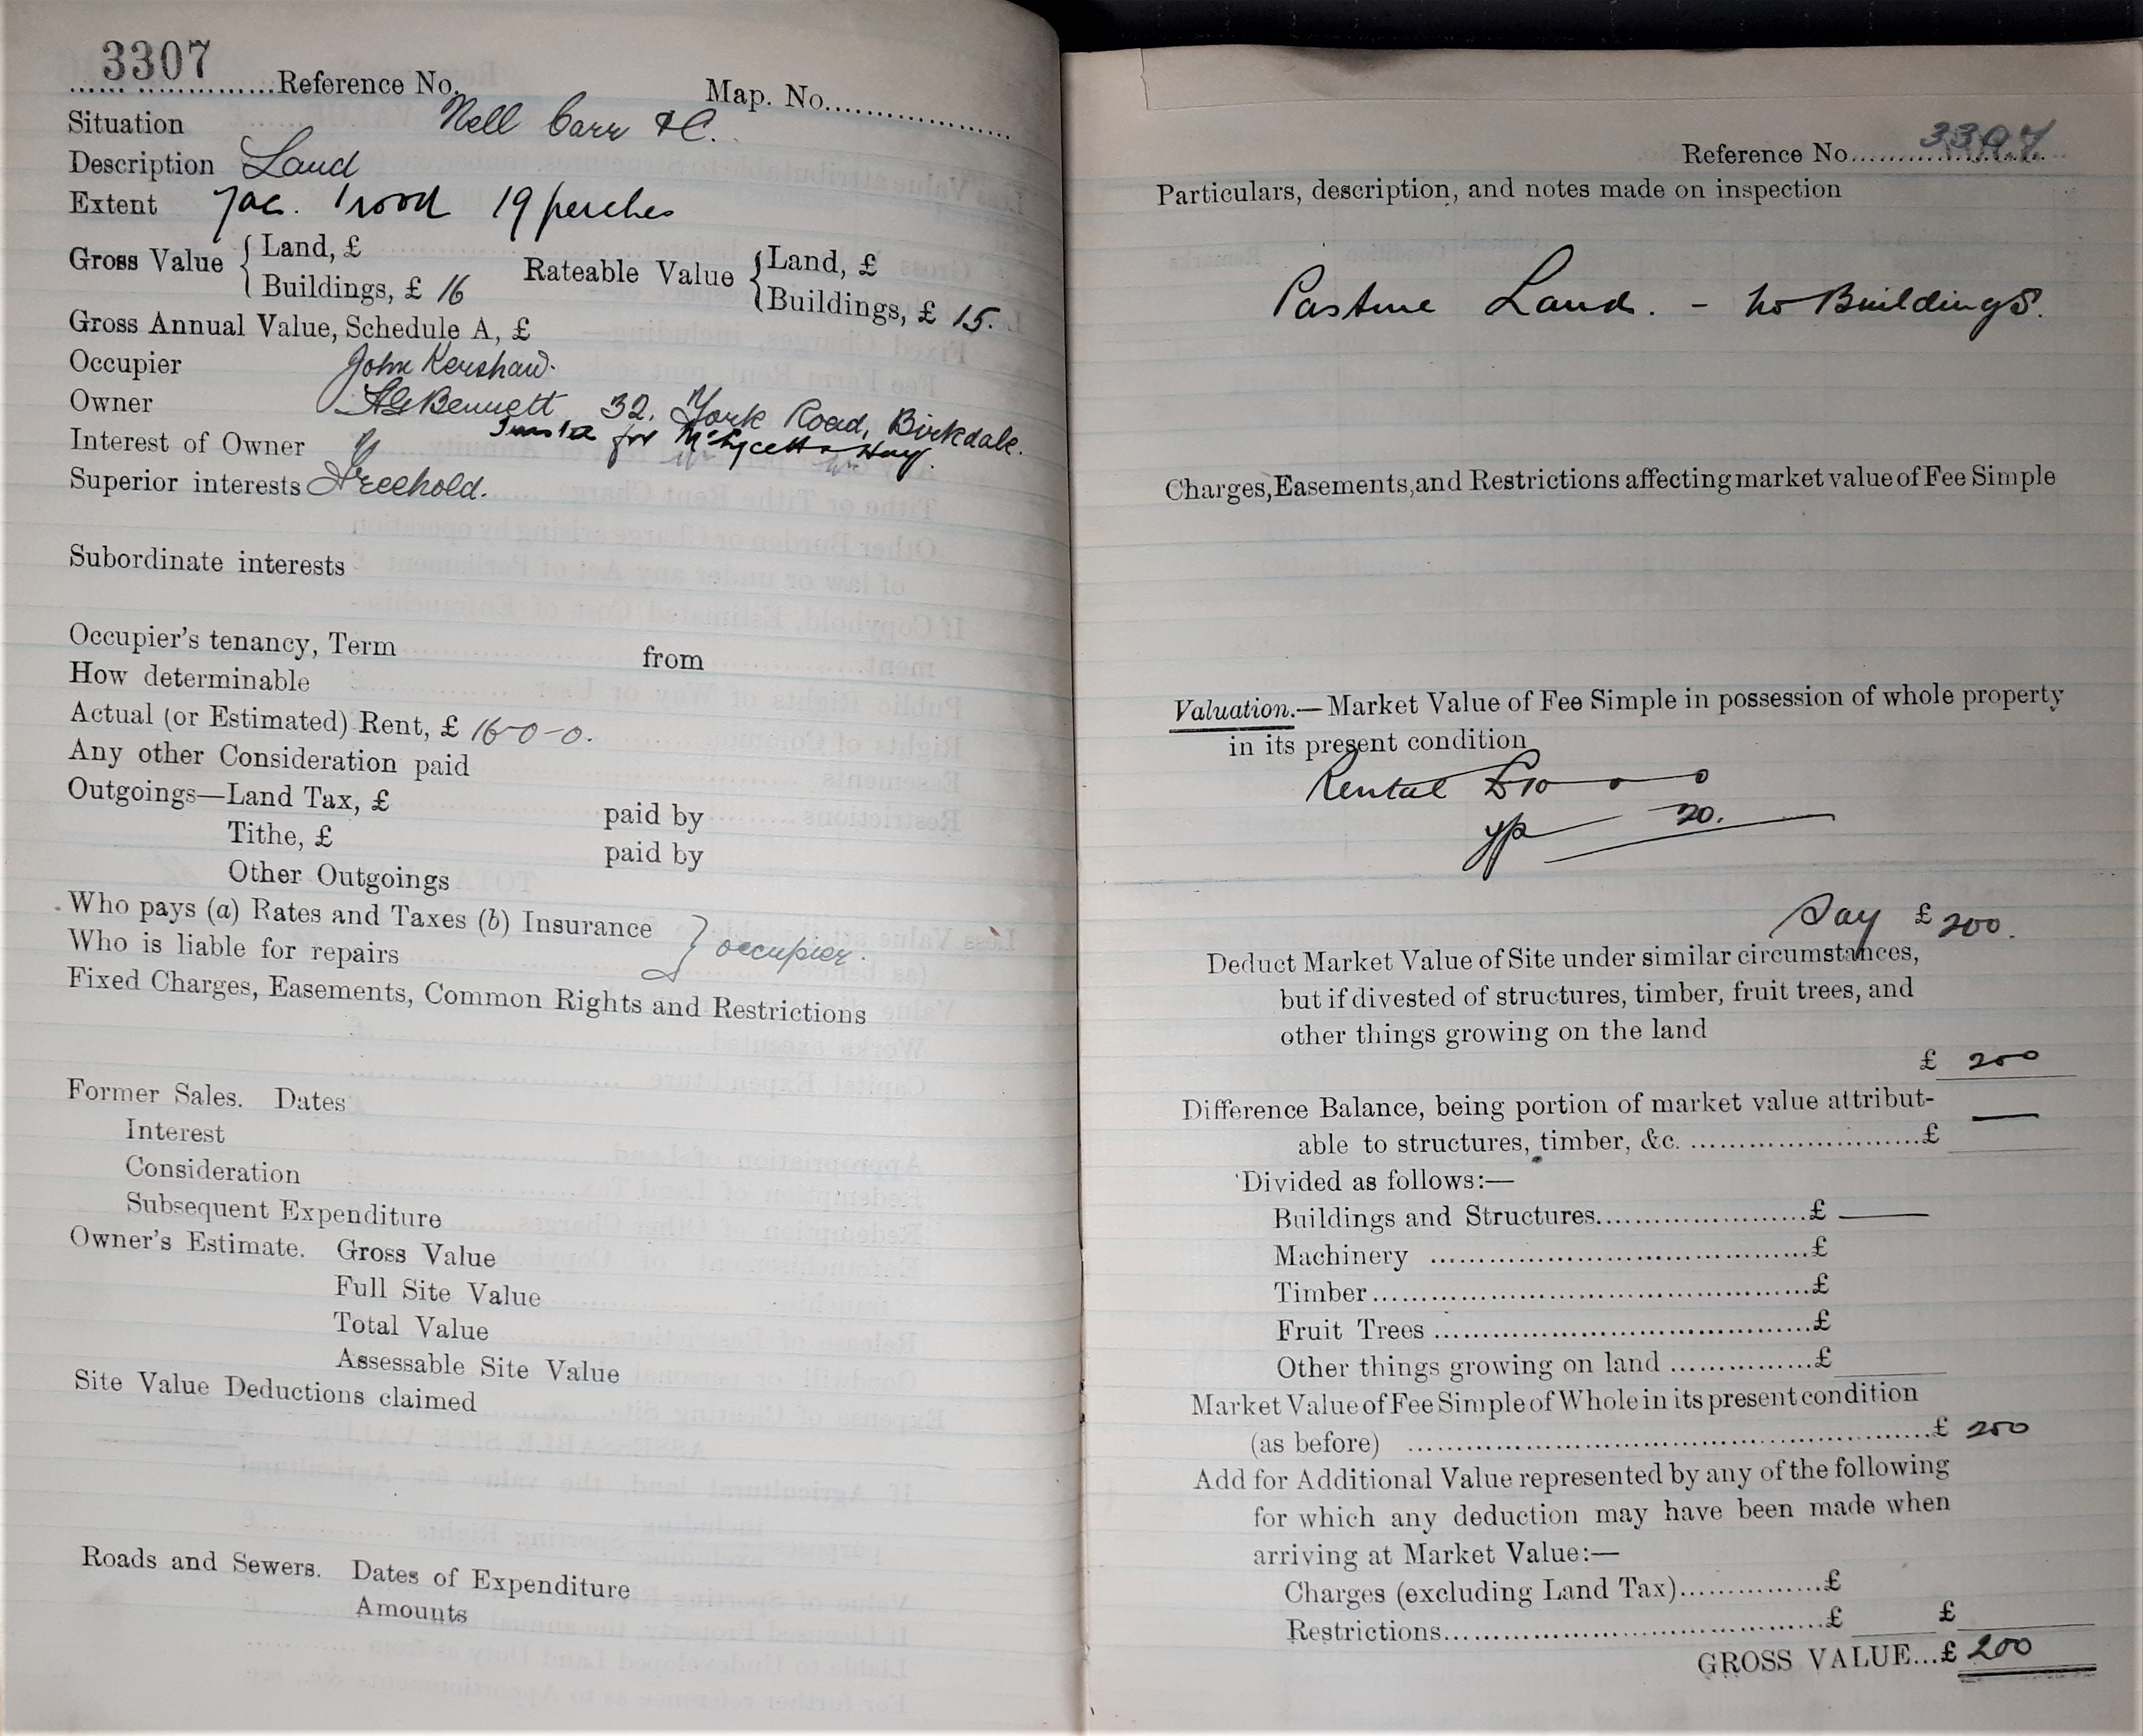 3307
Reference No. Map. No.
Situation Nell Carr &C.
Description Land
Extent 7ac. 1 rood 19 perches
Gross Value { Land, £ Rateable Value { Land, £
Buildings, £ 16 Buildings, £ 15.
Gross Annual Value, Schedule A, £
Occupier John Kershaw.
Owner AG Bennett 32. York Road, Birkdale.
Trustee for
Interest of Owner
Superior interests Freehold.
Subordinate interests
Occupier's tenancy, Term from
How determinable
Actual (or Estimated) Rent, £ 16-0-0.
Any other Consideration paid
Outgoings—Land Tax, £ paid by
Tithe, £ paid by
Other Outgoings
Who pays (a) Rates and Taxes (b) Insurance
Who is liable for repairs } occupier.
Fixed Charges, Easements, Common Rights and Restrictions
Former Sales. Dates
Interest
Consideration
Subsequent Expenditure
Owner's Estimate. Gross Value
Full Site Value
Total Value
Assessable Site Value
Site Value Deductions claimed
Roads and Sewers. Dates of Expenditure
Amounts
Reference No. 3307
Particulars, description, and notes made on inspection
Pasture Land. - no Buildings.
Charges, Easements, and Restrictions affecting market value of Fee Simple
Valuation.—Market Value of Fee Simple in possession of whole property
in its present condition
Rental £10 - 0 - 0
yp 20.
Say £ 200.
Deduct Market Value of Site under similar circumstances,
but if divested of structures, timber, fruit trees, and
other things growing on the land
£ 200
Difference Balance, being portion of market value attribut-
able to structures, timber, &c. £ —
Divided as follows:—
Buildings and Structures £ —
Machinery £
Timber £
Fruit Trees £
Other things growing on land £
Market Value of Fee Simple of Whole in its present condition
(as before) £ 200
Add for Additional Value represented by any of the following
for which any deduction may have been made when
arriving at Market Value:—
Charges (excluding Land Tax) £
Restrictions £ £
GROSS VALUE...£ 200